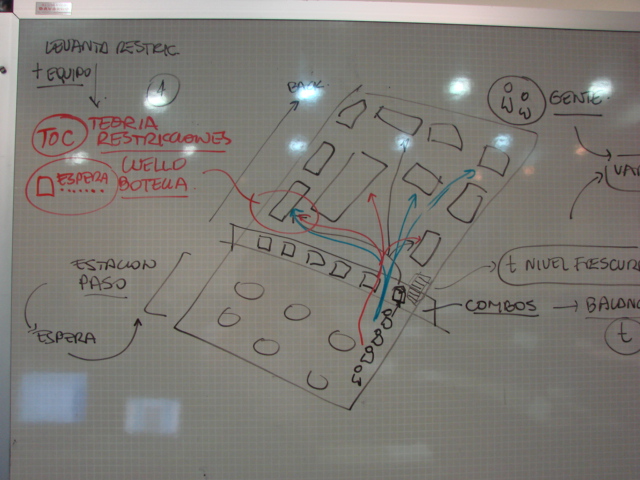 LEVANTO RESTRIC
+ EQUIPO
1
TOC TEORIA
RESTRICCIONES
ESPERA
CUELLO
BOTELLA
BACK
GENTE
VAR
ESTACION
PASO
ESPERA
t NIVEL FRESCURA
COMBOS → BALANC
t